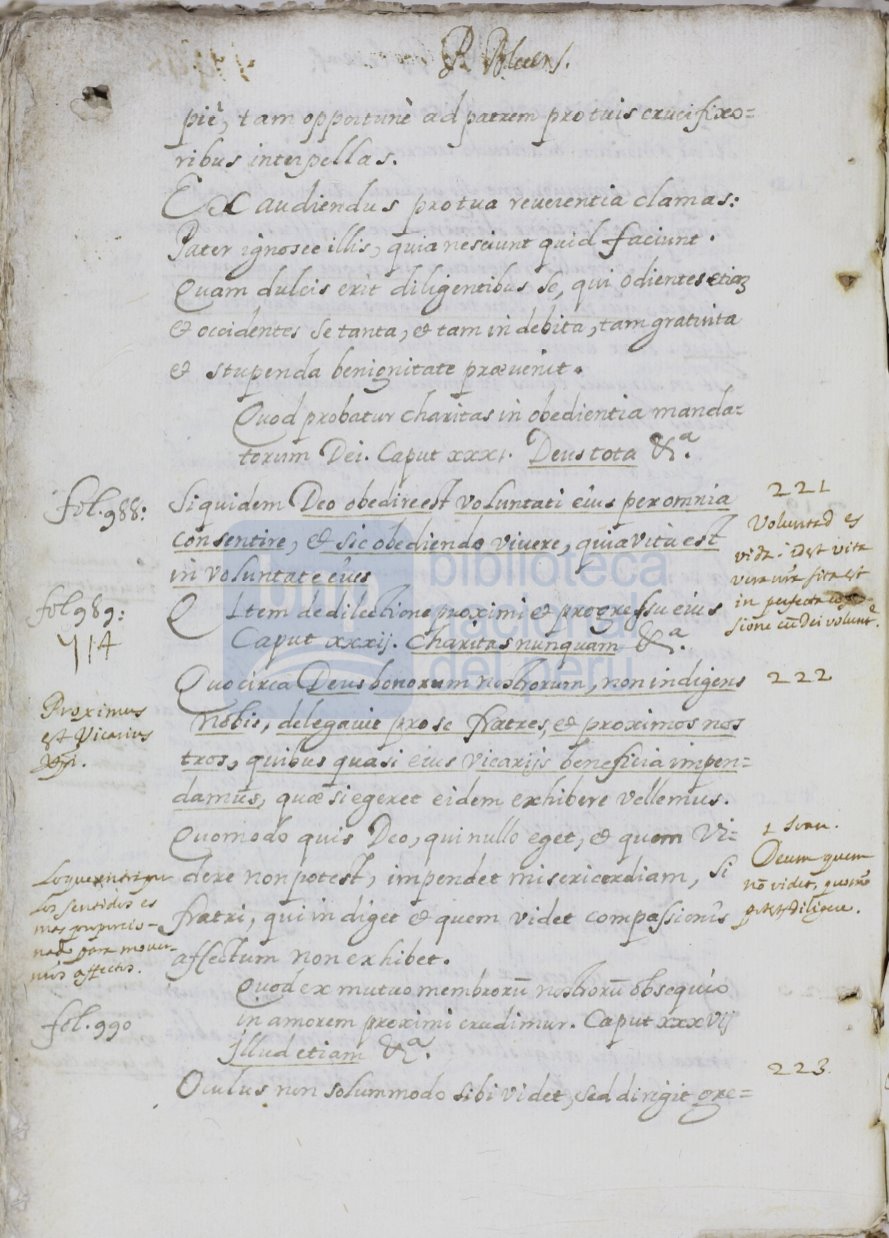 P. Blœns.
piè, tam opportunè ad patrem pro tuis crucifixo=
ribus interpellas.
Exaudiendus pro tua reverentia clamas:
Pater ignosce illis, quia nesciunt quid faciunt.
Quam dulcis erit diligentibus se, qui odientes etiam
& occidentes se tanta, & tam indebita, tam gratuita
& stupenda benignitate prævenit.
Quod probatur charitas in obedientia manda=
torum Dei. Caput xxxj. Deus tota &ª.
fol. 988:
Siquidem Deo obedire est voluntati eius per omnia
consentire, & sic obediendo vivere, quia vita est
in voluntate eius
221
Voluntad es
vida. Idest vita
vera nr̃a sita est
in perfecta
sione cũ Dei volunt.
fol. 989:
714
Item de dilectione proximi & progressu eius
Caput xxxij. Charitas nunquam &ª.
Proximus
est Vicarius
Xpi.
Quocirca Deus bonorum nostrorum, non indigens
nobis, delegavit pro se fratres, & proximos nos
tros, quibus quasi eius vicarijs beneficia impen=
damus, quæ si egeret eidem exhibere vellemus.
222
Quomodo quis Deo, qui nullo eget, & quem vi=
dere non potest, impendet misericordiam, si
fratri, qui indiget & quem videt compassionis
affectum non exhibet.
1 Ioan.
Deum quem
nõ videt, quomõ
potest diligere.
Lo que entra por
los sentidos es
mas proporcio-
nado para mover
nr̃os affectos.
fol. 990
Quod ex mutuo membrorũ nostrorũ obsequio
in amorem proximi erudimur. Caput xxxvij
Illud etiam &ª.
Oculus non solummodo sibi videt, sed dirigit gre=
223.
biblioteca
nacional
del perú